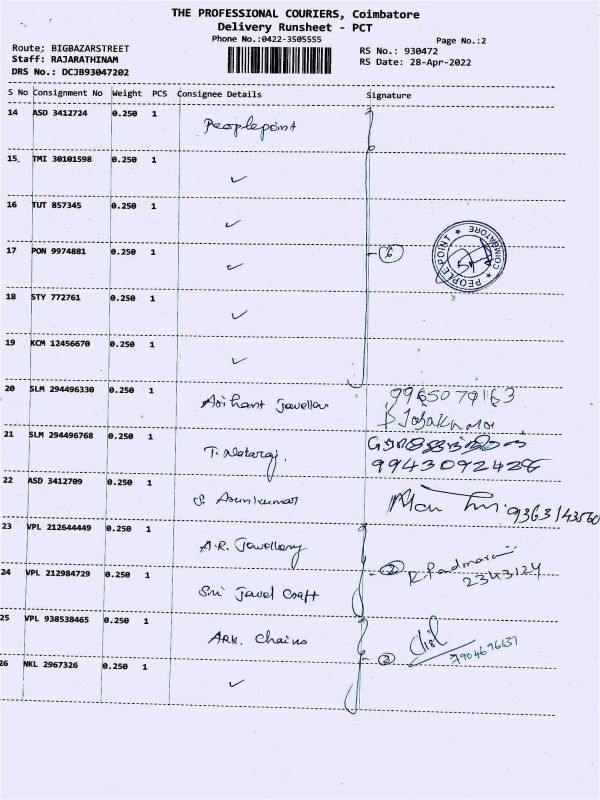 THE PROFESSIONAL COURIERS, Coimbatore
Delivery Runsheet - PCT
Phone No.:0422-3505555
Page No.:2
Route; BIGBAZARSTREET
RS No.: 930472
Staff: RAJARATHINAM
RS Date: 28-Apr-2022
DRS No.: DCJB93047202
S No Consignment No Weight PCS Consignee Details Signature
14 ASD 3412724 0.250 1 Peoplepoint
15. TMI 30101598 0.250 1 ✓
16 TUT 857345 0.250 1 ✓
17 PON 9974881 0.250 1 ✓ 6
PEOPLE POINT ★ COIMBATORE ★
18 STY 772761 0.250 1 ✓
19 KCM 12456670 0.250 1 ✓
20 SLM 294496330 0.250 1 Arihant Jewellar 9965079163
21 SLM 294496768 0.250 1 T. Nataraj. 9943092428
22 ASD 3412709 0.250 1 S. Arunkumar 9363143560
23 VPL 212644449 0.250 1 A.R. Jewellary
24 VPL 212984729 0.250 1 Sri Jewel Craft 2 R. Padmavani 2343124
25 VPL 938538465 0.250 1 ARK. Chains
26 NKL 2967326 0.250 1 ✓ 2 7904696637